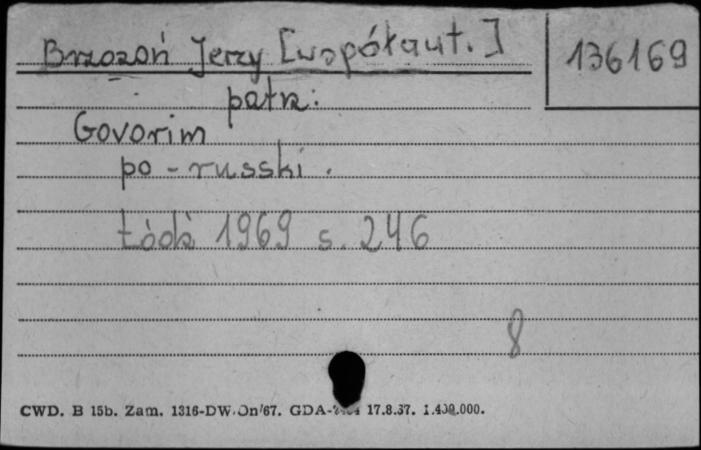 Brzozoń Jerzy [współaut.]
136169
patrz:
Govorim
po-russki.
Łódź 1969 s. 246
8
CWD. B 15b. Zam. 1316-DW.On/67. GDA- 17.8.67. 1.400.000.